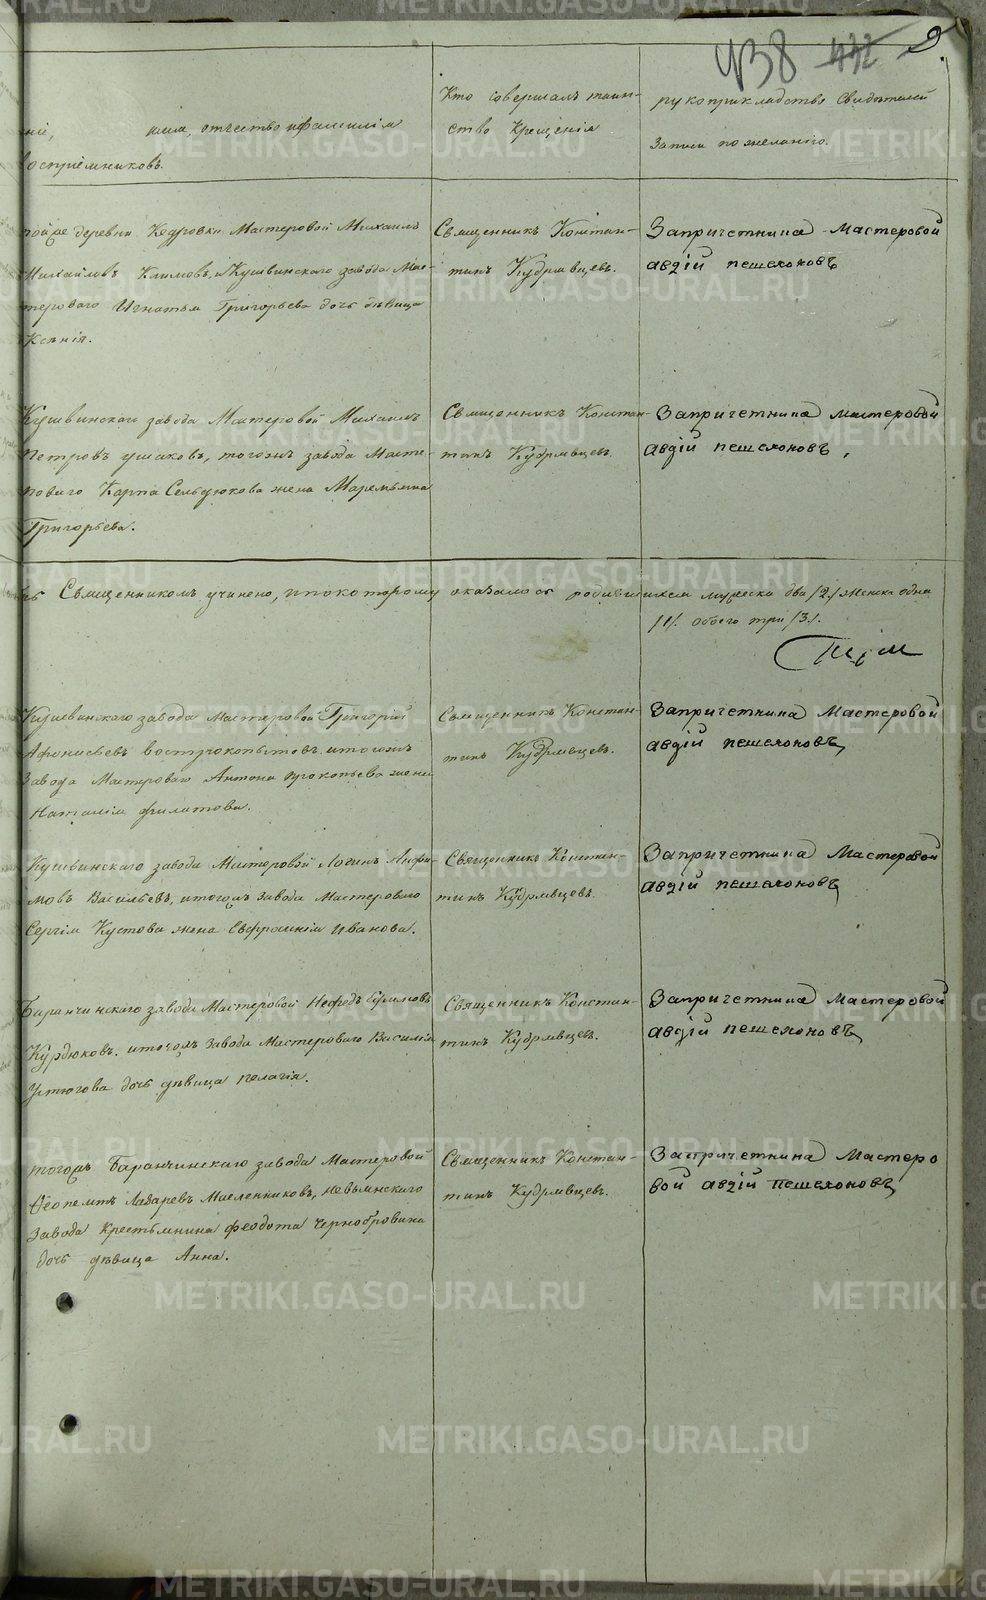 438 432 9.
ніе, имя, отчество и фамилія
восприемниковъ.
Кто совершалъ таин-
ство Крещенія
рукоприкладство Свидѣтелей
записи по желанію.
тойже деревни Кедровки Мастеровой Михаилъ
Михайловъ Климовъ, и Кушвинскаго завода Мас-
тероваго Игнатья Григорьева дочь дѣвица
Ксенія.
Священникъ Констан-
тинъ Кудрявцевъ.
Запричетника Мастеровой
авдій пешехоновъ
Кушвинскаго завода Мастеровой Михаилъ
Петровъ ушаковъ, тогожъ завода Масте-
роваго Карпа Сельдюкова жена Маремьяна
Григорьева.
Священникъ Констан-
тинъ Кудрявцевъ.
Запричетника мастеровой
авдій пешехоновъ,
Священникомъ учинено, и по которому оказалось родившихся мужеска два /2/ женска одна
/1/. Обоего три /3/.
Кушвинскаго завода Мастеровой Григорій
Афонасьевъ вострокопытовъ, итогожъ
Завода Мастероваго Антона прокопьева жена
Наталія филатова.
Священникъ Констан-
тинъ Кудрявцевъ.
Запричетника Мастеровой
авдій пешехоновъ
Кушвинскаго завода Мастеровой Логинъ Анфи-
мовъ Васильевъ, итогожъ завода Мастероваго
Сергія Кустова жена Евфросинія иванова.
Священникъ Констан-
тинъ Кудрявцевъ.
Запричетника Мастеровой
авдій пешехоновъ
Баранчинскаго завода Мастеровой Нефедъ Ефимовъ
Курдюковъ. итогожъ завода Мастероваго Василія
Устюгова дочь дѣвица пелагія.
Священникъ Констан-
тинъ Кудрявцевъ.
Запричетника мастеровой
авдій пешехоновъ
тогожъ Баранчинскаго завода Мастеровой
Феопемптъ Лазаревъ Масленниковъ, невьянскаго
Завода Крестьянина феодота Чернобровина
дочь дѣвица Анна.
Священникъ Констан-
тинъ Кудрявцевъ.
Запричетника Мастеро
вой авдій пешехоновъ
METRIKI.GASO-URAL.RU